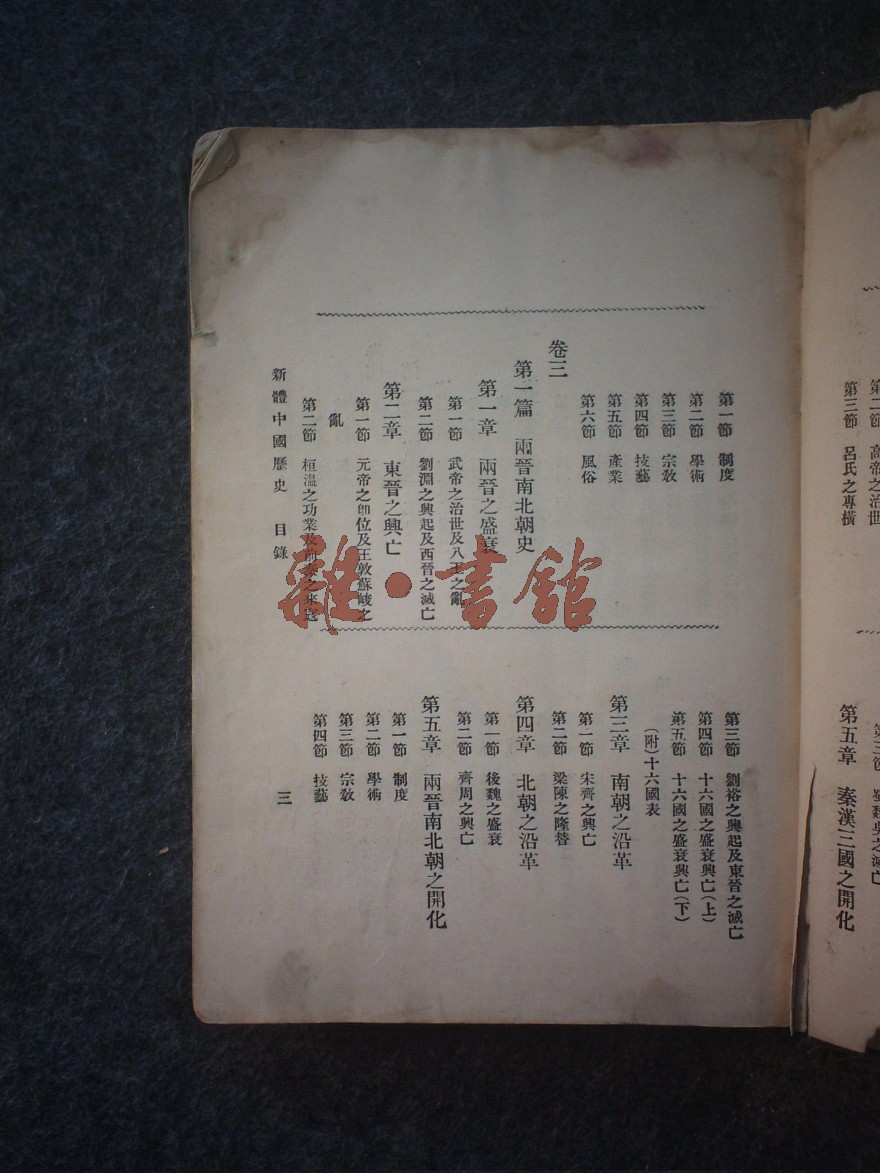 第二節　高帝之治世
第三節　呂氏之專橫
第五章　秦漢三國之開化
第一節　制度
第二節　學術
第三節　宗敎
第四節　技藝
第五節　產業
第六節　風俗
卷三
第一篇　兩晉南北朝史
第一章　兩晉之盛衰
第一節　武帝之治世及八王之亂
第二節　劉淵之興起及西晉之滅亡
第二章　東晉之興亡
第一節　元帝之卽位及王敦蘇峻之
亂
第二節　桓溫之功業及前秦之
第三節　劉裕之興起及東晉之滅亡
第四節　十六國之盛衰興亡(上)
第五節　十六國之盛衰興亡(下)
(附)十六國表
第三章　南朝之沿革
第一節　宋齊之興亡
第二節　梁陳之隆替
第四章　北朝之沿革
第一節　後魏之盛衰
第二節　齊周之興亡
第五章　兩晉南北朝之開化
第一節　制度
第二節　學術
第三節　宗敎
第四節　技藝
新體中國歷史　目錄　三
雜·書館